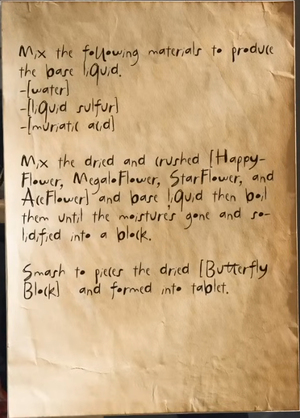 Mix the following materials to produce
the base liquid.
-[water]
-[liquid sulfur]
-[muriatic acid]
Mix the dried and crushed [Happy-
Flower, MegaloFlower, StarFlower, and
AceFlower] and base liquid then boil
them until the moisture's gone and so-
lidified into a block.
Smash to pieces the dried [Butterfly
Block] and formed into tablet.